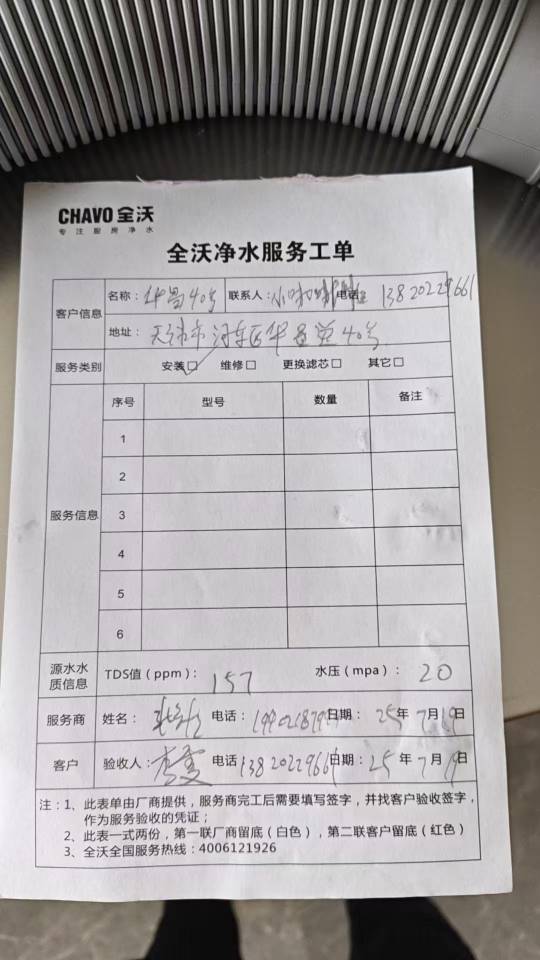 CHAVO 全沃
专注厨房净水
全沃净水服务工单
客户信息
名称：华昌40号 联系人：小 电话 13820229661
地址：天津市河东区华昌道40号
服务类别 安装☑ 维修□ 更换滤芯□ 其它□
服务信息
序号 型号 数量 备注
1
2
3
4
5
6
源水水质信息 TDS值（ppm）：157 水压（mpa）：20
服务商 姓名： 电话： 日期：25年7月19日
客户 验收人：李雯 电话 13820229661 日期：25年7月19日
注：1、此表单由厂商提供，服务商完工后需要填写签字，并找客户验收签字，
作为服务验收的凭证；
2、此表一式两份，第一联厂商留底（白色），第二联客户留底（红色）
3、全沃全国服务热线：4006121926